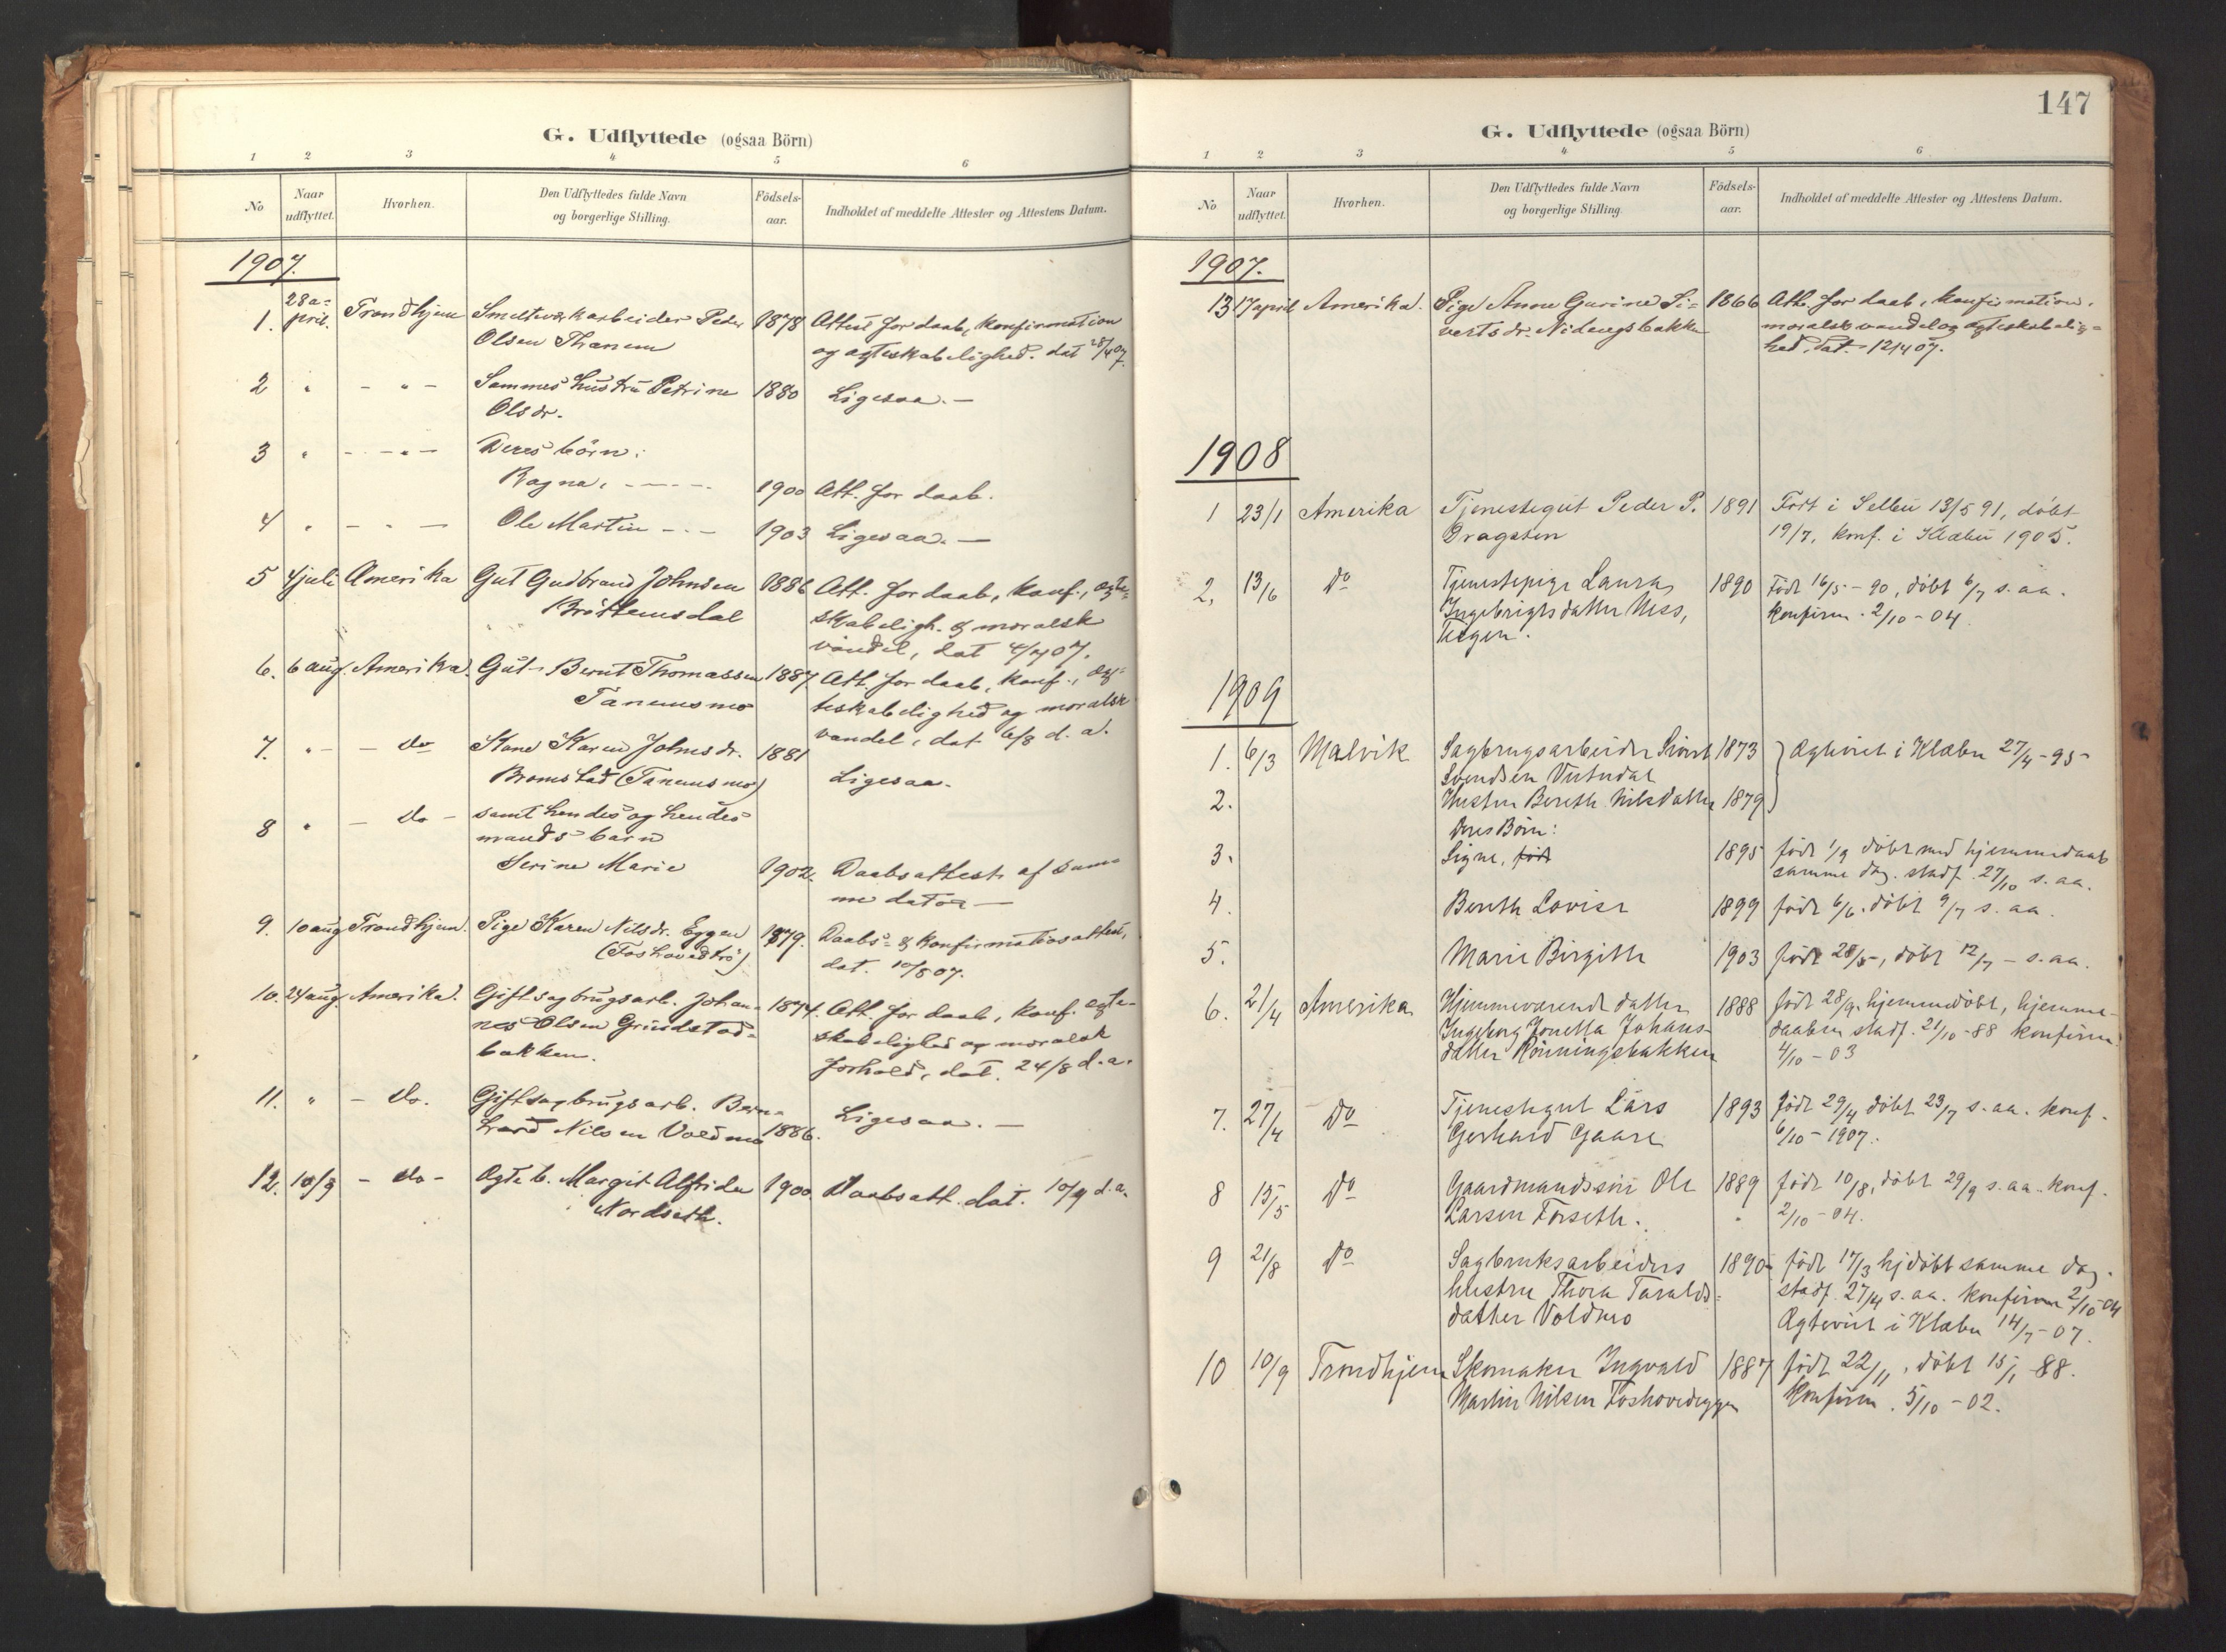 G. Udflyttede (ogsaa Börn)
1 2 3 4 5 6
No Naar udflyttet. Hvorhen. Den Udflyttedes fulde Navn og borgerlige Stilling. Födsels-aar. Indholdet af meddelte Attester og Attestens Datum.
1907.
1. 28 a-pril. Trondhjem Smelteverkarbeider Peder 1878 Attest for daab, konfirmation
Olsen Thanem og ægteskabelighed. dat 28/4 07.
2 " - " - Sammes hustru Petrine 1880 Ligesaa. -
Olsdr.
3 " - - " - Deres börn:
Ragna, - - - - 1900 Att. for daab.
4 " - " - Ole Martin - - - 1903 Ligesaa. -
5 4 juli Amerika Gut Gudbrand Johnsen 1886 Att. for daab, konf., ægte-
Bröttemsdal skabeligh. & moralsk
vandel, dat 4/7 07.
6. 6 aug. Amerika. Gut Bernt Thomassen 1887 Att. for daab, konf., æg-
Tanemsmo teskabelighed og moralsk
vandel, dat 6/8 d. a.
7. " - - do Kone Karen Johnsdr. 1881
Bromstad (Tanemsmo) Ligesaa.
8 " - do - samt hendes og hendes
mands barn
Serine Marie 1902. Daabsattest af sam-
me dato -
9. 10 aug Trondhjem. Pige Karen Nilsdr. Eggen 1879. Daabs- & konfirmationsattest,
(Foshovedtrö) dat. 10/8 07.
10. 24 aug. Amerika. Gift sagbrugsarb. Johan- 1874. Att. for daab, konf. ægte-
nes Olsen Grindstad- skabelighed og moralsk
bakken. forhold, dat. 24/8 d. a.
11. " - do. Gift sagbrugsarb. Bern-
hard Nilsen Voldmo 1886. Ligesaa. -
12. 10/9 - do - Ægte b. Margit Alfrida 1900 Daabsatt. dat. 10/9 d. a.
Nordseth.
147
G. Udflyttede (ogsaa Börn)
1 2 3 4 5 6
No Naar udflyttet. Hvorhen. Den Udflyttedes fulde Navn og borgerlige Stilling. Födsels-aar. Indholdet af meddelte Attester og Attestens Datum.
1907.
13 17 april Amerika. Pige Anne Gurine Si- 1866 Att. for daab, konfirmation,
vertsdr. Nidengsbakken moralsk vandel og ægteskabelig-
hed. Dat. 12/4 07.
1908
1 23/1 Amerika Tjenestegut Peder P. 1891 Födt i Selbu 13/5 91, döbt
Dragsten 19/7, konf. i Klæbu 1905.
2. 13/6 Do Tjenestepige Laura 1890 Födt 16/5 - 90, döbt 6/7 s. aa.
Ingebrigtsdatter Ness, konfirm. 2/10 - 04.
Teigen.
1909
1. 6/3 Malvik Sagbrugsarbeider Sivert 1873 } Ægteviet i Klæbu 27/4 - 95
Svendsen
2. Hustru Bereth Nilsdatter 1879
Deres Börn:
3. Signe, födt 1895 födt 1/9 döbt med hjemmedaab
samme dag. stadf. 27/10 s. aa.
4. Bereth Lovise 1899 födt 6/6. döbt 9/7 s. aa.
5. Marie Birgitte 1903 födt 28/5, döbt 12/7 - s. aa.
6. 21/4 Amerika Hjemmeværende datter 1888 födt 28/9. hjemmedöbt, hjemme-
Ingeborg Jonetta Johans- daaben stadf. 21/10 - 88 konfirm.
datter Rönningsbakken 4/10 - 03
7. 27/4 Do Tjenestegut Lars 1893 födt 29/4 döbt 23/7 s. aa. konf.
Gerhard Gaare 6/10 - 1907.
8 15/5 Do Gaardmandssön Ole 1889 födt 10/8, döbt 29/9 s. aa. konf.
Larsen Forseth. 2/10 - 04.
9 21/8 Do Sagbruksarbeiders 1890 födt 17/3 hjdöbt samme dag.
hustru Thora Taralds- stadf. 27/4 s. aa. konfirm 2/10 - 04
datter Voldmo Ægteviet i Klæbu 14/7 - 07.
10 10/9 Trondhjem Skomaker Ingvald 1887 födt 22/11, döbt 15/1 88.
Martin Nilsen Foshovedeggen konfirm. 5/10 - 02.